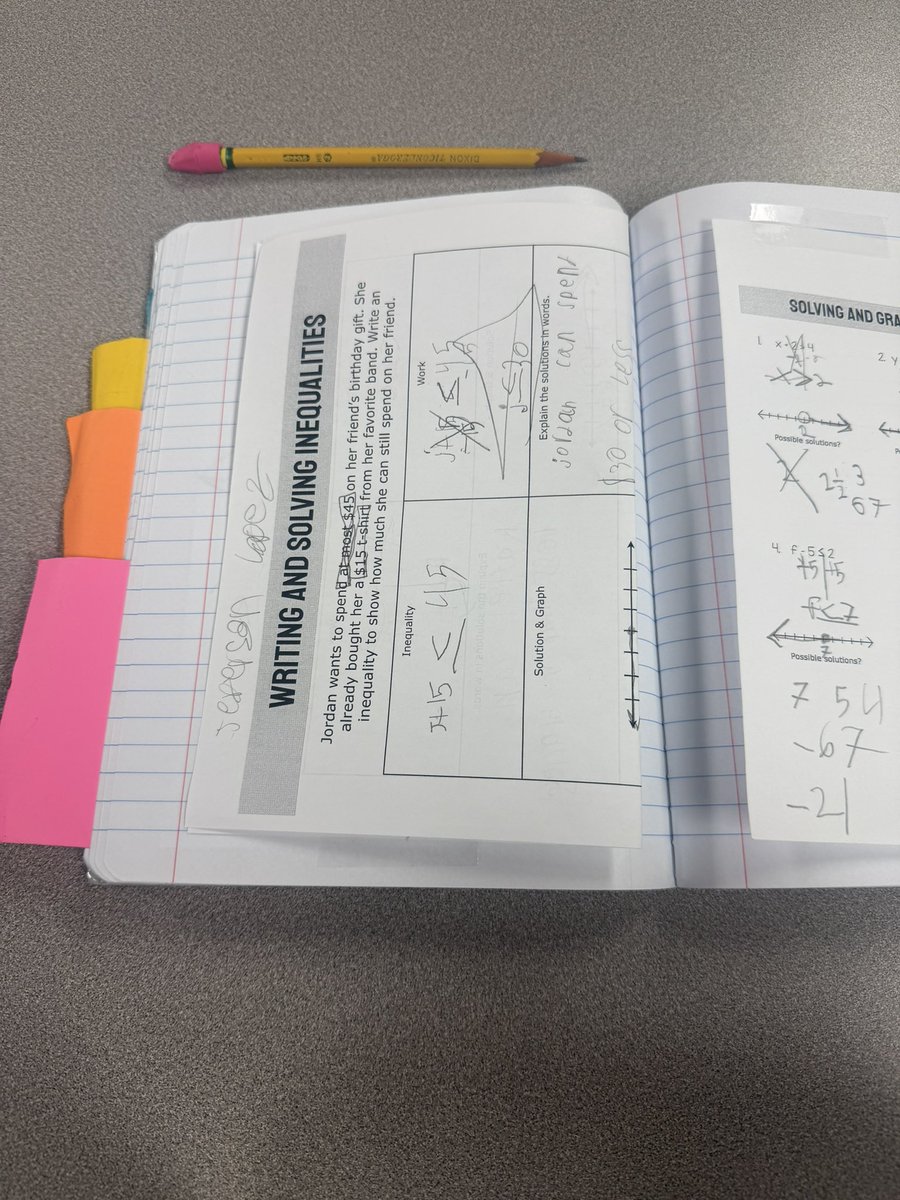 DIXON TICONDEROGA®
Jeferson lopez
WRITING AND SOLVING INEQUALITIES
Jordan wants to spend at most $45 on her friend's birthday gift. She
already bought her a $15 t-shirt from her favorite band. Write an
inequality to show how much she can still spend on her friend.
Inequality
J+15 ≤ 45
Work
j+15 ≤ 45
j ≤ 30
Solution & Graph
Explain the solutions in words.
jordan can spent
$30 or less
SOLVING AND GRA
1.
x>2
2
Possible solutions?
3
67
2. y
4. f - 5 ≤ 2
+5 +5
f≤7
7
Possible solutions?
7 5 4
-67
-21